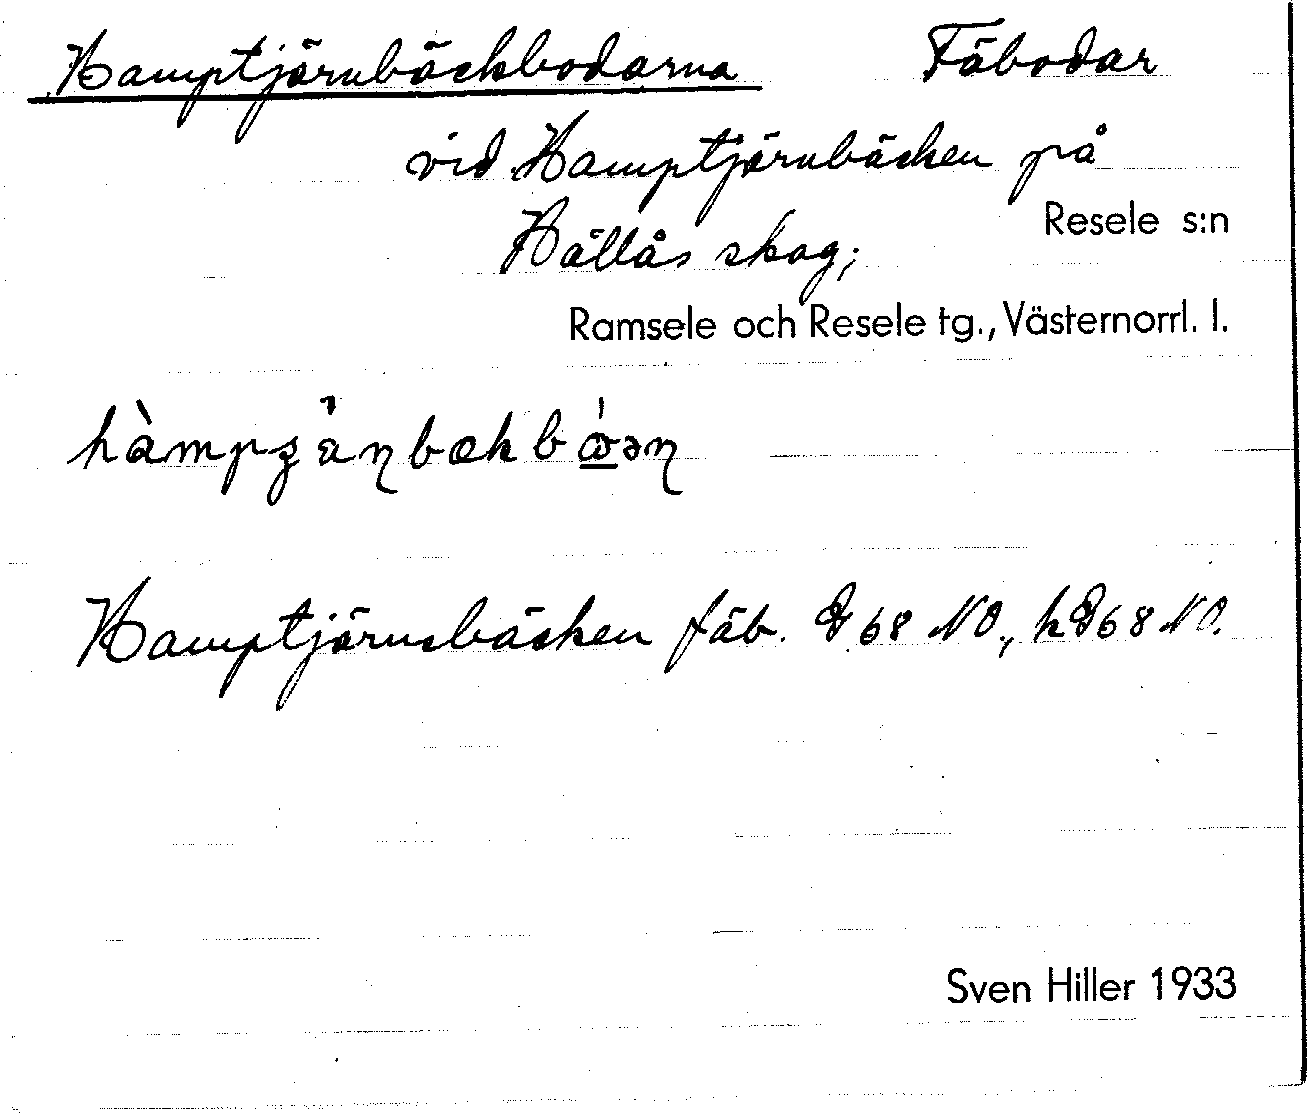 Hamptjärnbäckbodarna Fäbodar
vid Hamptjärnbäcken på
Resele s:n
Hällås skog;
Ramsele och Resele tg., Västernorrl. l.
Hamptjärnsbäcken fäb. 68 NO., 68 NO.
Sven Hiller 1933